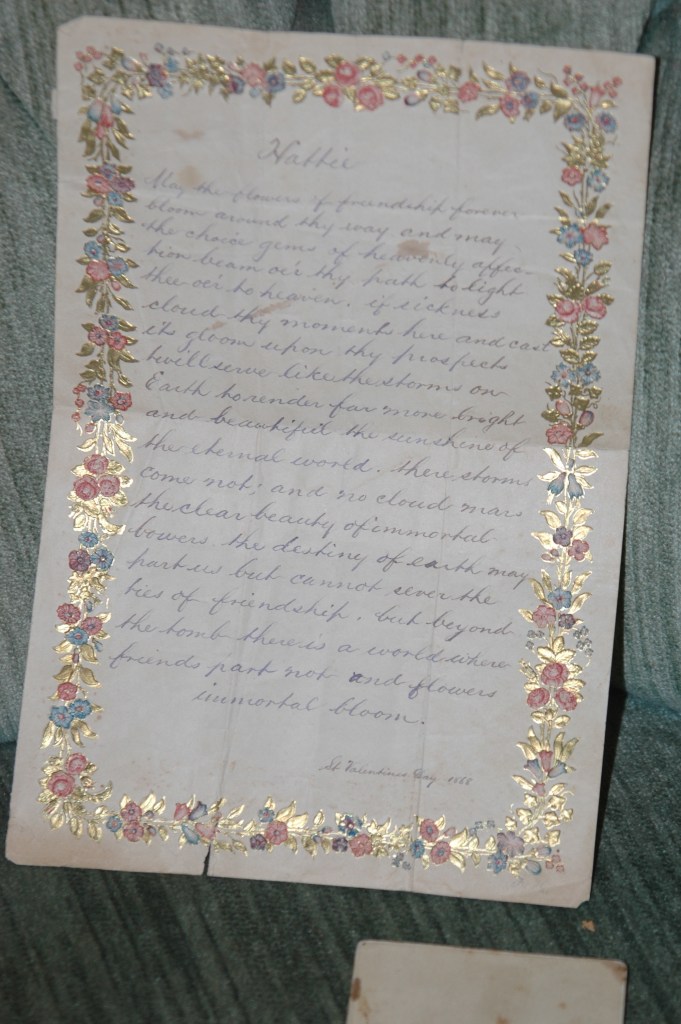 Hattie
May the flowers of friendship forever
bloom around thy way and may
the choice gems of heavenly affec-
tion beam o'er thy path to light
thee o'er to heaven. if sickness
cloud thy moments here and cast
its gloom upon thy prospects
twill serve like the storms on
Earth to render far more bright
and beautiful the sunshine of
the eternal world. there, storms
come not; and no cloud mars
the clear beauty of immortal
bowers. the destiny of earth may
part us but cannot sever the
ties of friendship. but beyond
the tomb there is a world where
friends part not and flowers
immortal bloom.
St Valentines Day